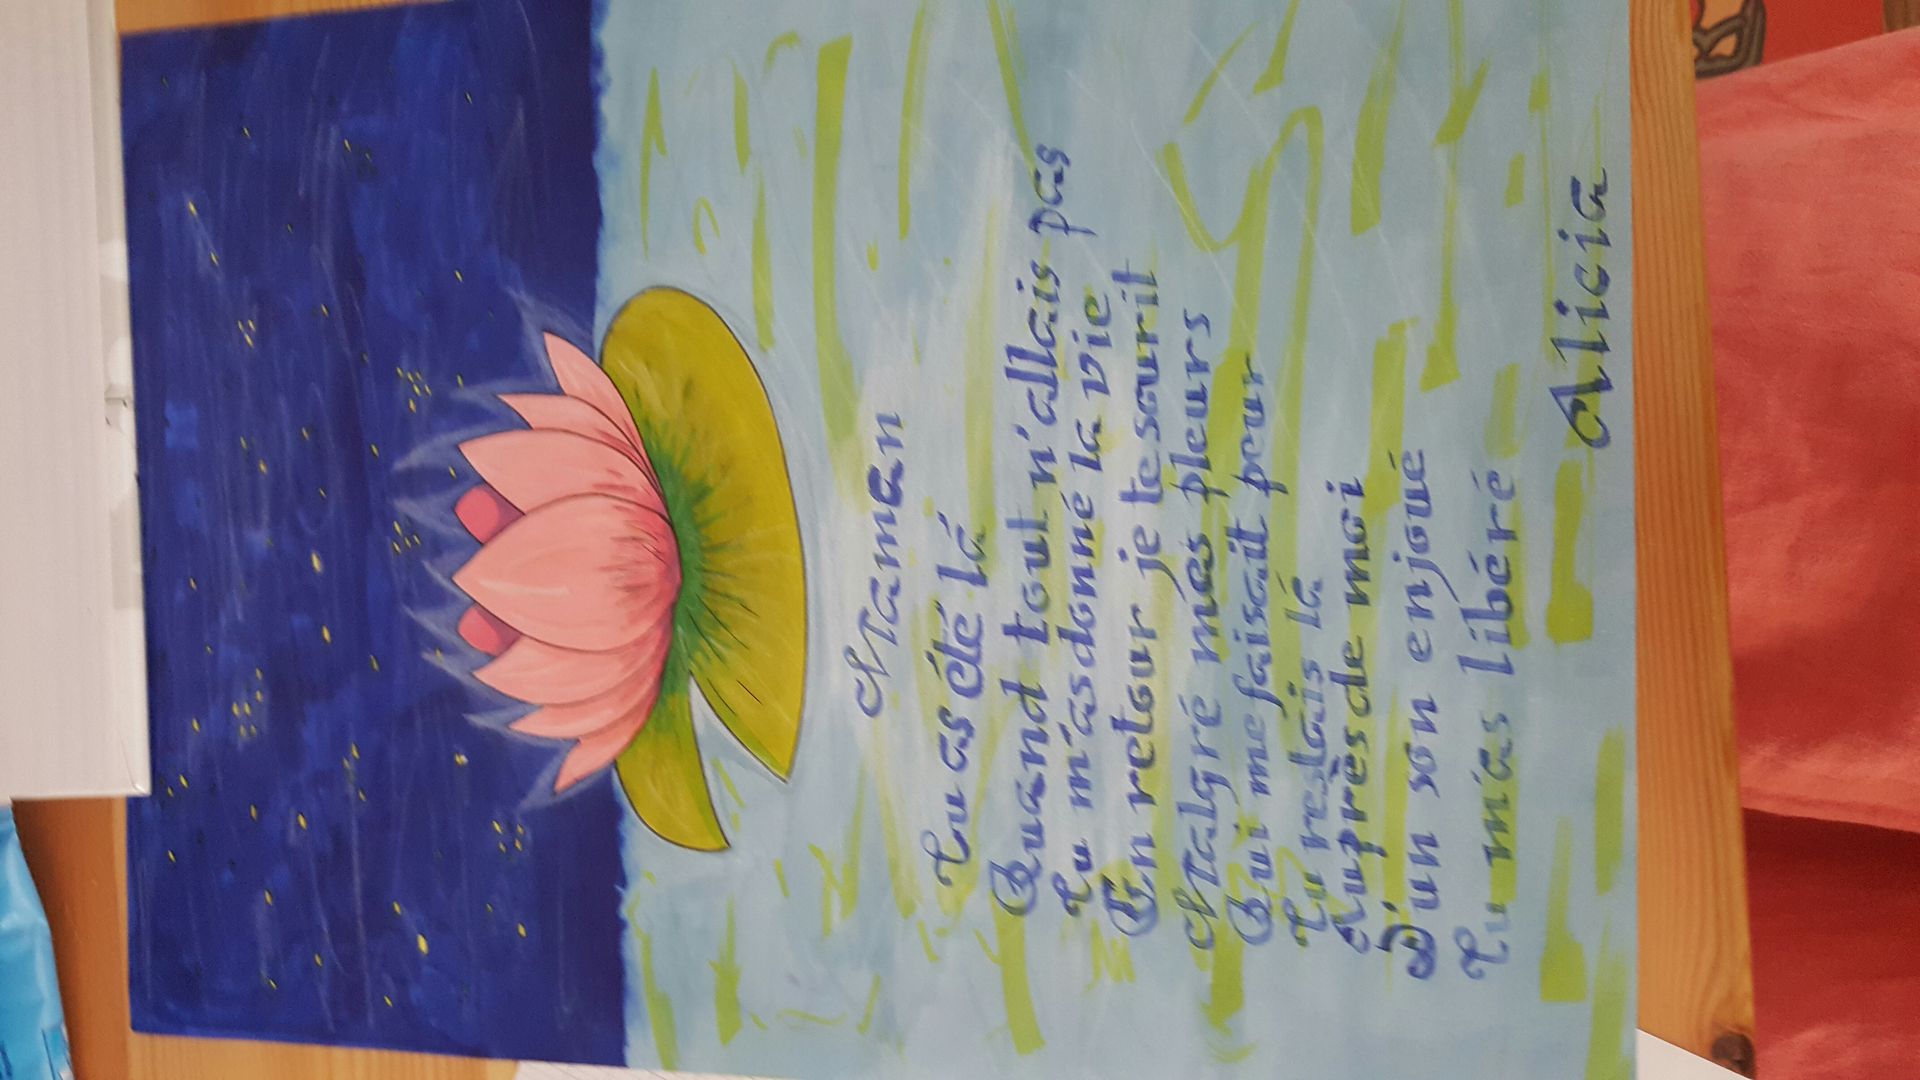 Maman
Tu as été là
Quand tout n'allais pas
Tu m'as donné la vie
En retour je te sourit
Malgré mes pleurs
Qui me faisait peur
Tu restais là
Auprès de moi
D'un son enjoué
Tu m'as libéré
Alicia